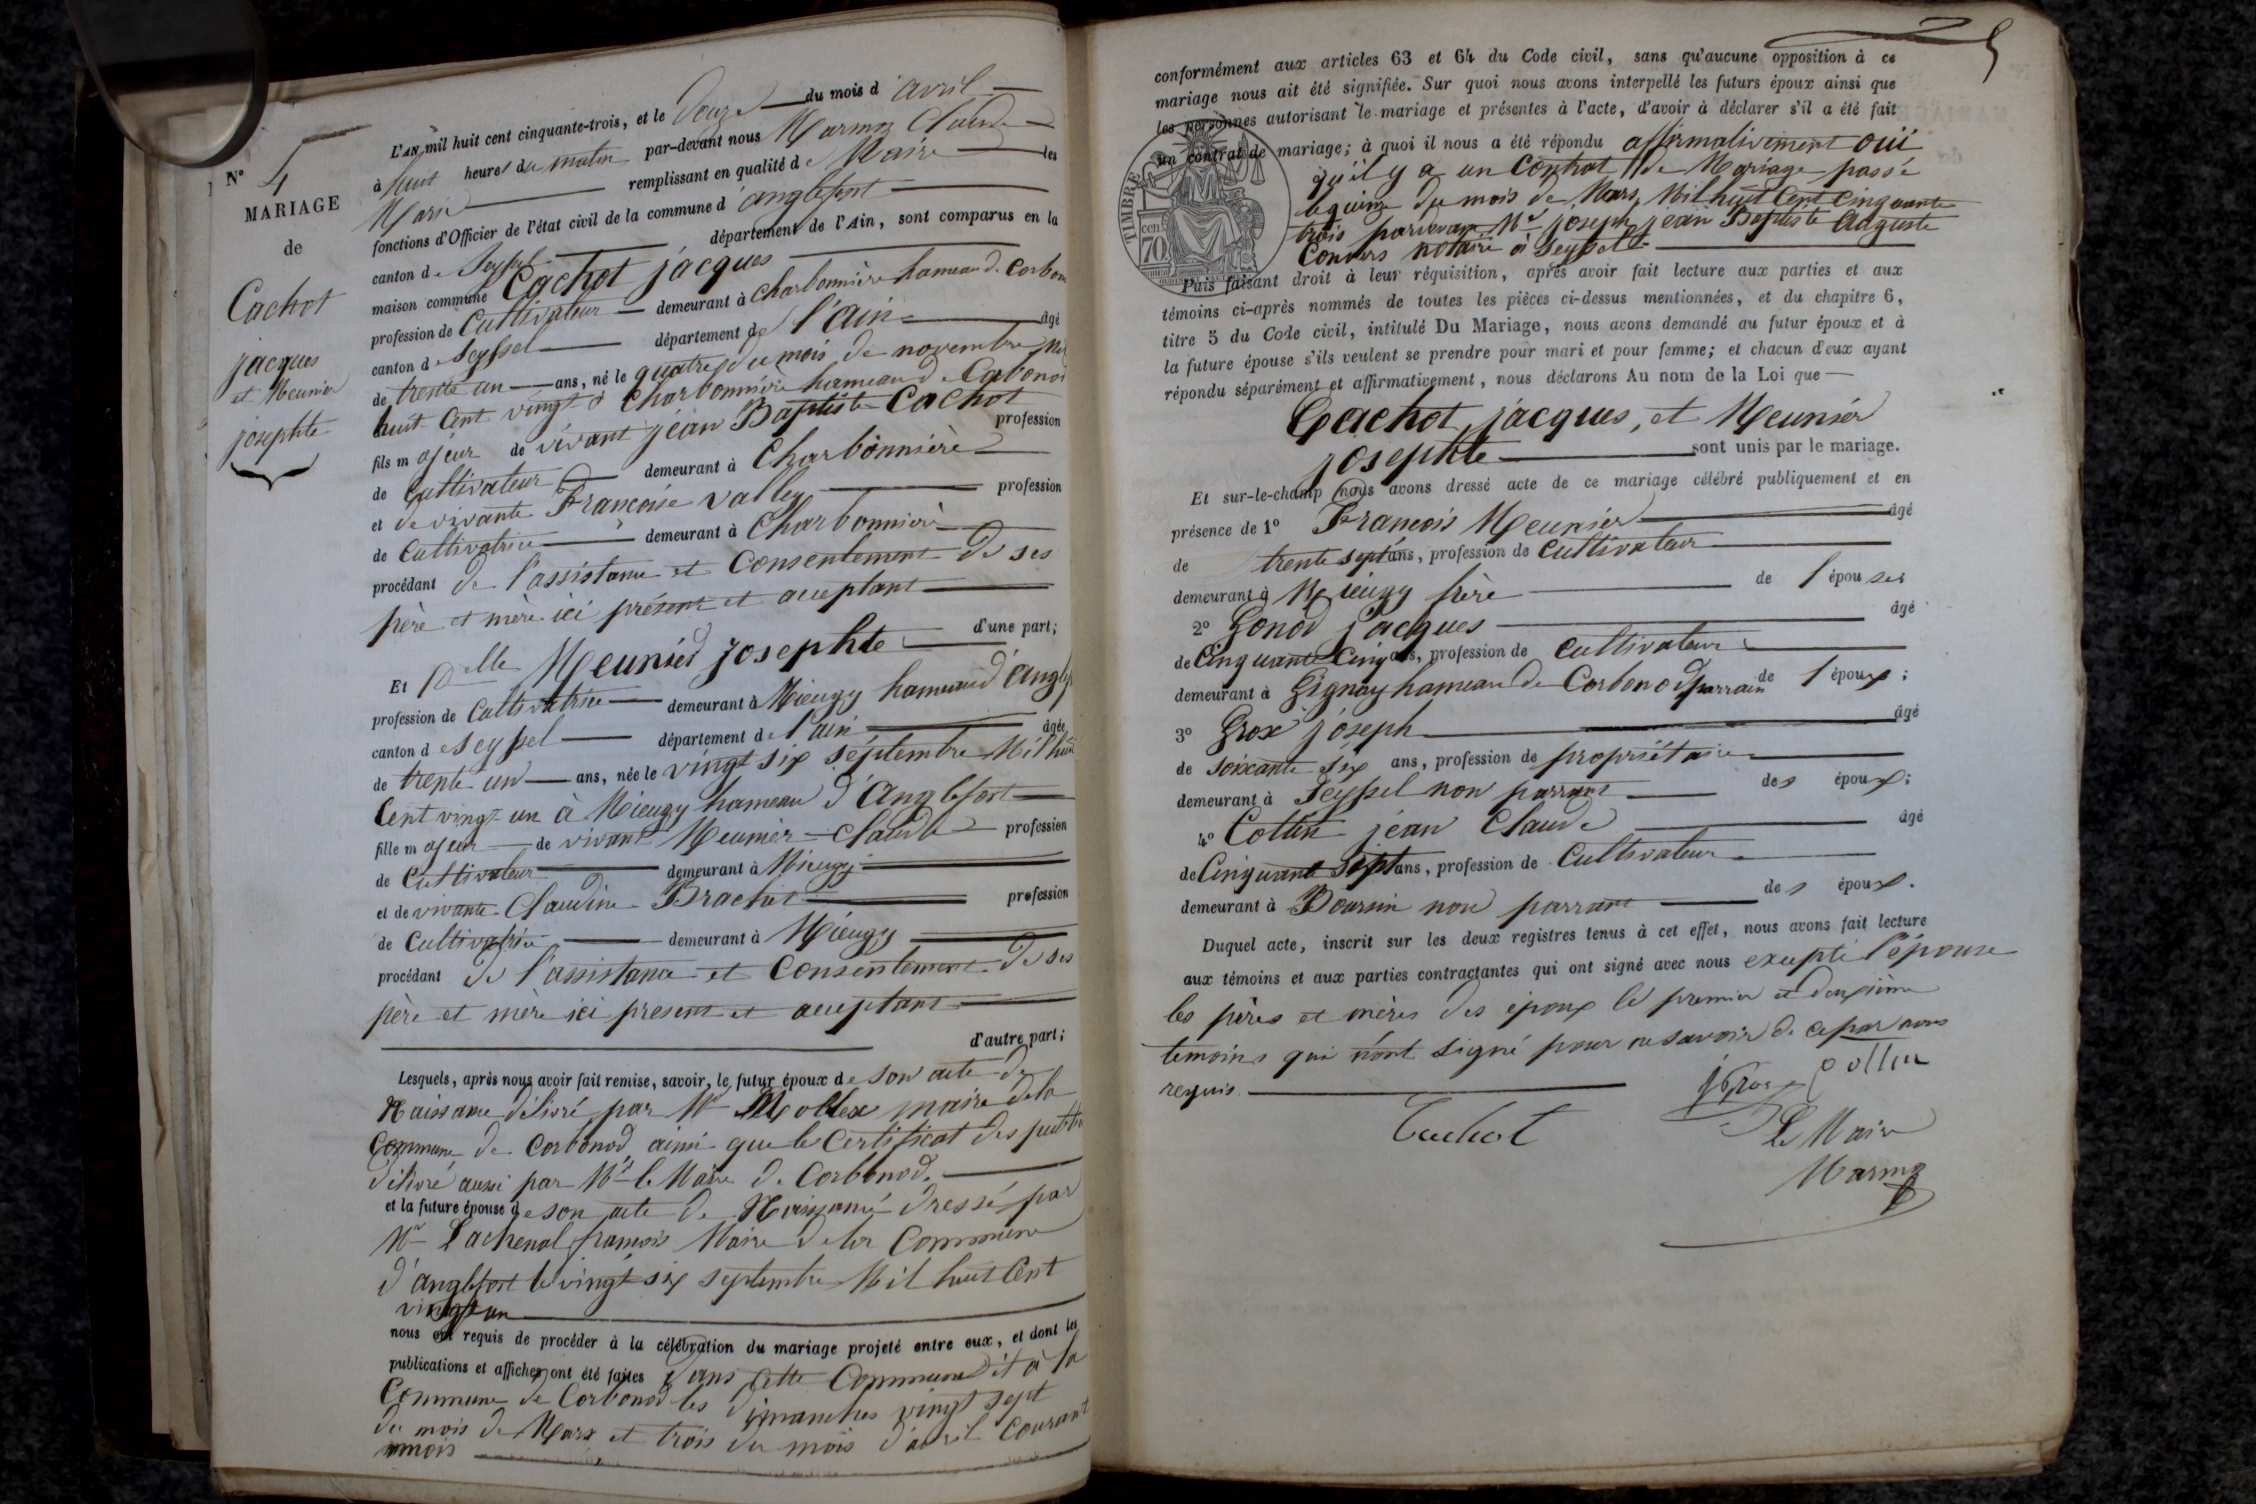 N° 4
MARIAGE
de
Cachot
jacques
et Meunier
josephte
L'AN mil huit cent cinquante-trois, et le douze du mois d'avril
à huit heures du matin par-devant nous Marmoz Claude
Marie remplissant en qualité de Maire les
fonctions d'Officier de l'état civil de la commune d'anglefort
canton de Seyssel département de l'Ain, sont comparus en la
maison commune Cachot jacques
profession de Cultivateur demeurant à Charbonnière hameau de Corbon
canton de Seyssel département de l'ain âgé
de trente un ans, né le quatre du mois de novembre Mil
huit Cent vingt à Charbonnière hameau de Corbonod
fils majeur de vivant jean Baptiste Cachot profession
de Cultivateur demeurant à Charbonnière
et de vivante Françoise vallez profession
de Cultivatrice demeurant à Charbonnière
procédant de l'assistance et Consentement de ses
père et mère ici présent et aceptant
d'une part;
Et Delle Meunier josephte
profession de Cultivatrice demeurant à Mieugy hameau d'Anglef
canton de seyssel département de l'ain âgée
de trente un ans, née le vingt six septembre Mil huit
Cent vingt un à Mieugy hameau d'Anglefort
fille majeur de vivant Meunier Claude profession
de Cultivateur demeurant à Mieugy
et de vivante Claudine Brachet profession
de Cultivatrice demeurant à Mieugy
procédant de l'assistance et Consentement de ses
père et mère ici present et aceptant
d'autre part;
Lesquels, après nous avoir fait remise, savoir, le futur époux de son acte de
Naissance délivré par Mr Mollex maire de la
Commune de Corbonod ainsi que le Certificat des publi
délivré aussi par Mr le Maire de Corbonod.
et la future épouse de son acte de Naissance dressé par
Mr Lachenal françois Maire de la Commune
d'anglefort le vingt six septembre Mil huit Cent
vingt un
nous ont requis de procéder à la célébration du mariage projeté entre eux, et dont les
publications et affiches ont été faites dans cette Commune et à la
Commune de Corbonod les dimanches vingt sept
du mois de Mars et trois du mois d'avril Courant
mois
conformément aux articles 63 et 64 du Code civil, sans qu'aucune opposition à ce
mariage nous ait été signifiée. Sur quoi nous avons interpellé les futurs époux ainsi que
les personnes autorisant le mariage et présentes à l'acte, d'avoir à déclarer s'il a été fait
un contrat de mariage; à quoi il nous a été répondu affirmativement oui
qu'il y a un Contrat de Mariage passé
le quinze du mois de Mars, Mil huit Cent Cinquante
trois pardevant Mr joseph jean Baptiste Auguste
Convers notaire à Seyssel
TIMBRE
70 cen
Puis faisant droit à leur réquisition, après avoir fait lecture aux parties et aux
témoins ci-après nommés de toutes les pièces ci-dessus mentionnées, et du chapitre 6,
titre 5 du Code civil, intitulé Du Mariage, nous avons demandé au futur époux et à
la future épouse s'ils veulent se prendre pour mari et pour femme; et chacun d'eux ayant
répondu séparément et affirmativement, nous déclarons Au nom de la Loi que
Cachot, jacques, et Meunier
josephte sont unis par le mariage.
Et sur-le-champ nous avons dressé acte de ce mariage célébré publiquement et en
présence de 1° François Meunier âgé
de trente sept ans, profession de Cultivateur
demeurant à Mieugy frère de l'épouses
2° Gonod jacques âgé
de Cinquante Cinq ans, profession de Cultivateur
demeurant à Gignay hameau de Corbonod parrain de l'époux;
3° Grox joseph âgé
de soixante six ans, profession de propriétaire
demeurant à Seyssel non parrant des époux;
4° Collin jean Claude âgé
de Cinquant Sept ans, profession de Cultivateur
demeurant à Boursin non parrant des époux.
Duquel acte, inscrit sur les deux registres tenus à cet effet, nous avons fait lecture
aux témoins et aux parties contractantes qui ont signé avec nous excepté l'épouse
les pères et mères des époux le premier et deuxième
temoins qui n'ont signé pour ne savoir de ce par nous
requis
jGrox Collin
Cachot
Le Maire
Marmoz